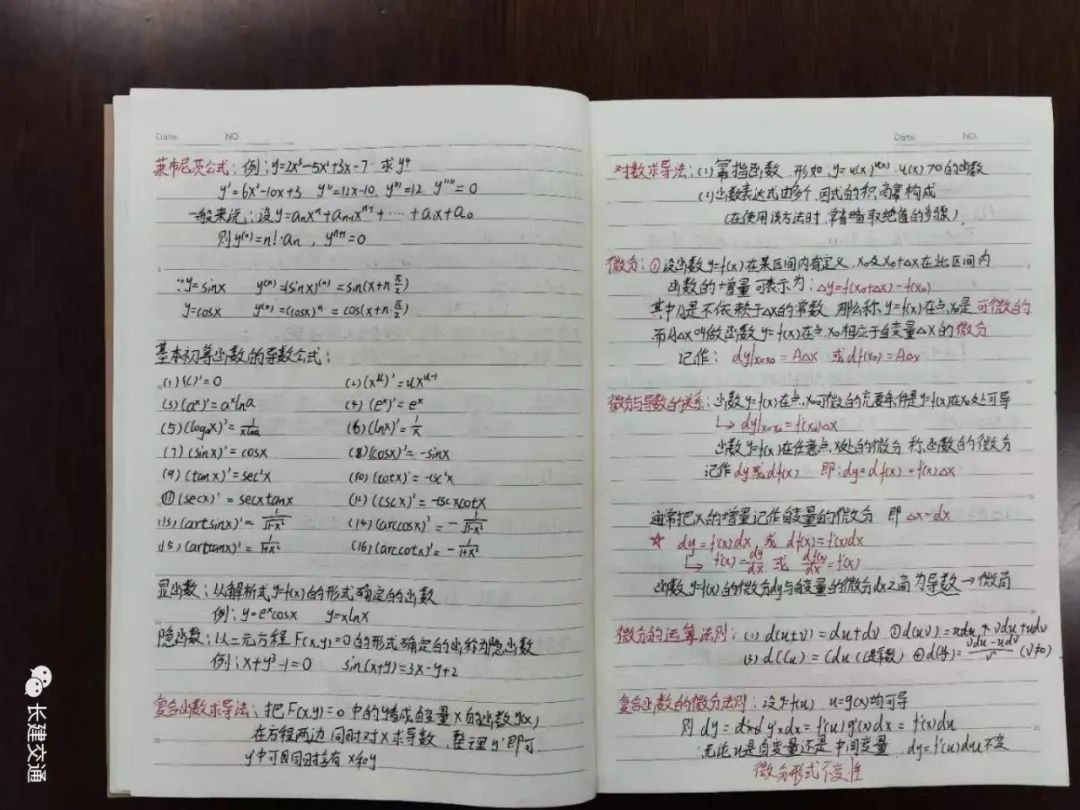 Date. NO.
莱布尼茨公式：例：y=2x³-5x²+3x-7 求y⁽⁴⁾
y'=6x²-10x+3 y''=12x-10 y'''=12 y''''=0
一般来说：设y=aₙxⁿ+aₙ₋₁xⁿ⁻¹+…+a₁x+a₀
则y⁽ⁿ⁾=n!·aₙ，yⁿ⁺¹=0
y=sinx y⁽ⁿ⁾=(sinx)⁽ⁿ⁾=sin(x+n·π/2)
y=cosx y⁽ⁿ⁾=(cosx)ⁿ=cos(x+n·π/2)
基本初等函数的导数公式：
(1)(C)'=0 (2)(x^u)'=ux^(u-1)
(3)(aˣ)'=aˣlna (4)(eˣ)'=eˣ
(5)(logₐx)'=1/(xlna) (6)(lnx)'=1/x
(7)(sinx)'=cosx (8)(cosx)'=-sinx
(9)(tanx)'=sec²x (10)(cotx)'=-csc²x
(11)(secx)'=secxtanx (12)(cscx)'=-cscxcotx
(13)(artsinx)'=1/√(1-x²) (14)(arccosx)'=-1/√(1-x²)
(15)(arttanx)'=1/(1+x²) (16)(arccotx)'=-1/(1+x²)
显函数：以解析式y=f(x)的形式确定的函数
例：y=eˣcosx y=xlnx
隐函数：以二元方程F(x,y)=0的形式确定的函称为隐函数
例：x+y³-1=0 sin(x+y)=3x-y+2
复合函数求导法：把F(x,y)=0中的y看成自变量x的函数y(x)，
在方程两边同时对x求导数，整理y'即可.
y'中可同时含有x和y
Date. NO.
对数求导法：(1)幂指函数 形如y=u(x)^v(x) u(x)>0的函数
(2)函数表达式由多个因式的积、商、幂构成
(在使用该方法时，常省略取绝对值的步骤)
微分：①设函数y=f(x)在某区间内有定义，x₀及x₀+Δx在此区间内
函数的增量可表示为：Δy=f(x₀+Δx)-f(x₀)
其中A是不依赖于Δx的常数 那么称y=f(x)在点x₀是可微的
而AΔx叫做函数y=f(x)在点x₀相应于自变量Δx的微分
记作：dy|x=x₀=AΔx 或df(x₀)=AΔx
微分与导数的关系：函数y=f(x)在点x₀可微的充要条件是y=f(x)在x₀处可导
↳dy|x=x₀=f'(x₀)Δx
函数y=f(x)在任意点x处的微分 称函数的微分
记作dy或df(x) 即：dy=df(x)=f'(x)Δx
通常把x的增量记作自变量的微分 即Δx=dx
☆ dy=f'(x)dx，或 df(x)=f'(x)dx
↳f'(x)=dy/dx 或 df(x)/dx=f'(x)
函数y=f(x)的微分dy与自变量的微分dx之商为导数→微商
微分的运算法则：(1) d(u+v)=du+dv ②d(uv)=vdu+udv
(3) d(Cu)=Cdu(C是常数) ④d(u/v)=(vdu-udv)/v² (v≠0)
复合函数的微分法则：设y=f(u) u=g(x)均可导
则 dy= y'xdx=f'(u)g'(x)dx=f'(x)du
无论u是自变量还是中间变量，dy=f'(u)du不变
微分形式不变性
长建交通